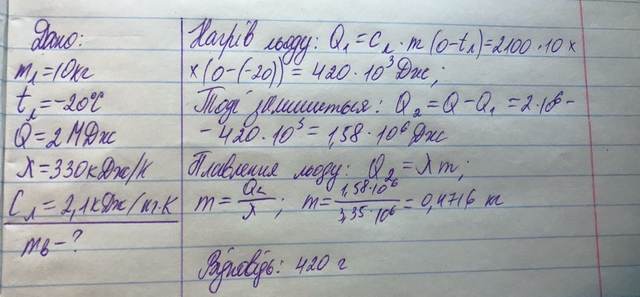 Дано:
mл=10кг
tл=-20°C
Q=2МДж
λ=330кДж/к
Cл=2,1кДж/кг·К
mв-?
Нагрів льоду: Q₁=Cл·m(0-tл)=2100·10×
×(0-(-20))=420·10³Дж;
Тоді залишиться: Q₂=Q-Q₁=2·10⁶-
-420·10³=1,58·10⁶Дж
Плавлення льоду: Q₂=λm;
m=Q₂/λ; m=1,58·10⁶/3,35·10⁶=0,4716 кг
Відповідь: 420 г